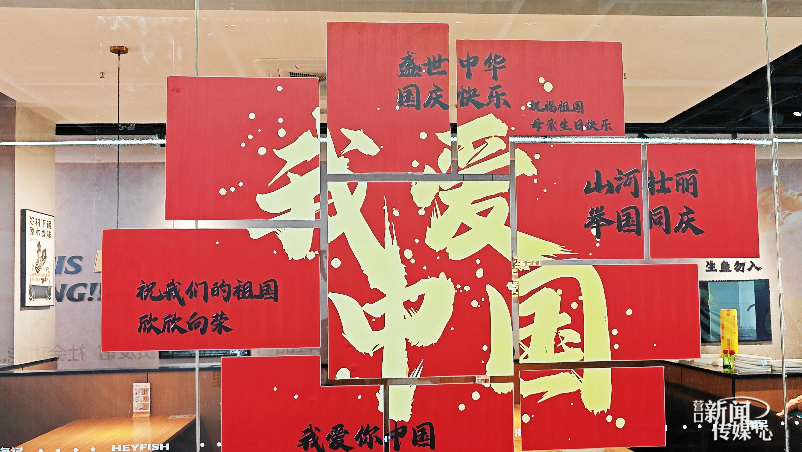 盛世中华
国庆快乐
祝福祖国
母亲生日快乐
我爱
中国
山河壮丽
举国同庆
祝我们的祖国
欣欣向荣
我爱你中国
生鱼勿入
HEYFISH
营口新闻
传媒中心